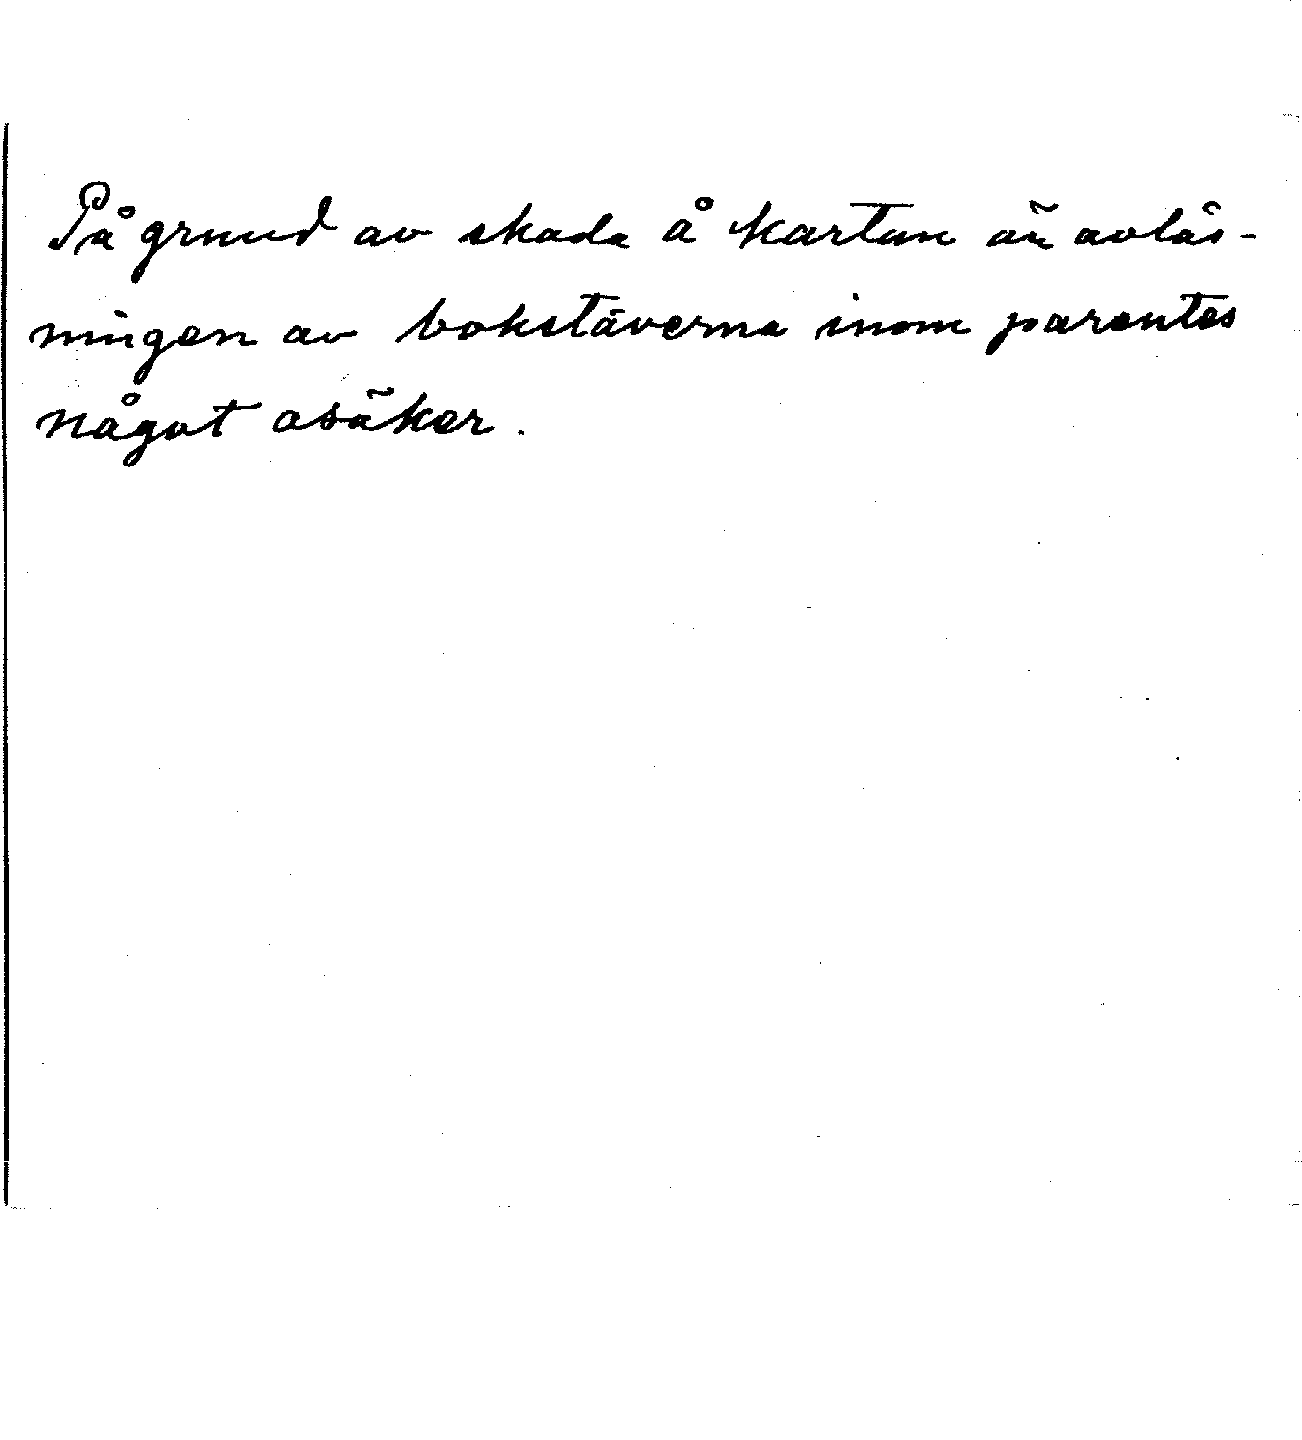 På grund av skada å kartan är avläs-
ningen av bokstäverna inom parentes
något osäker.